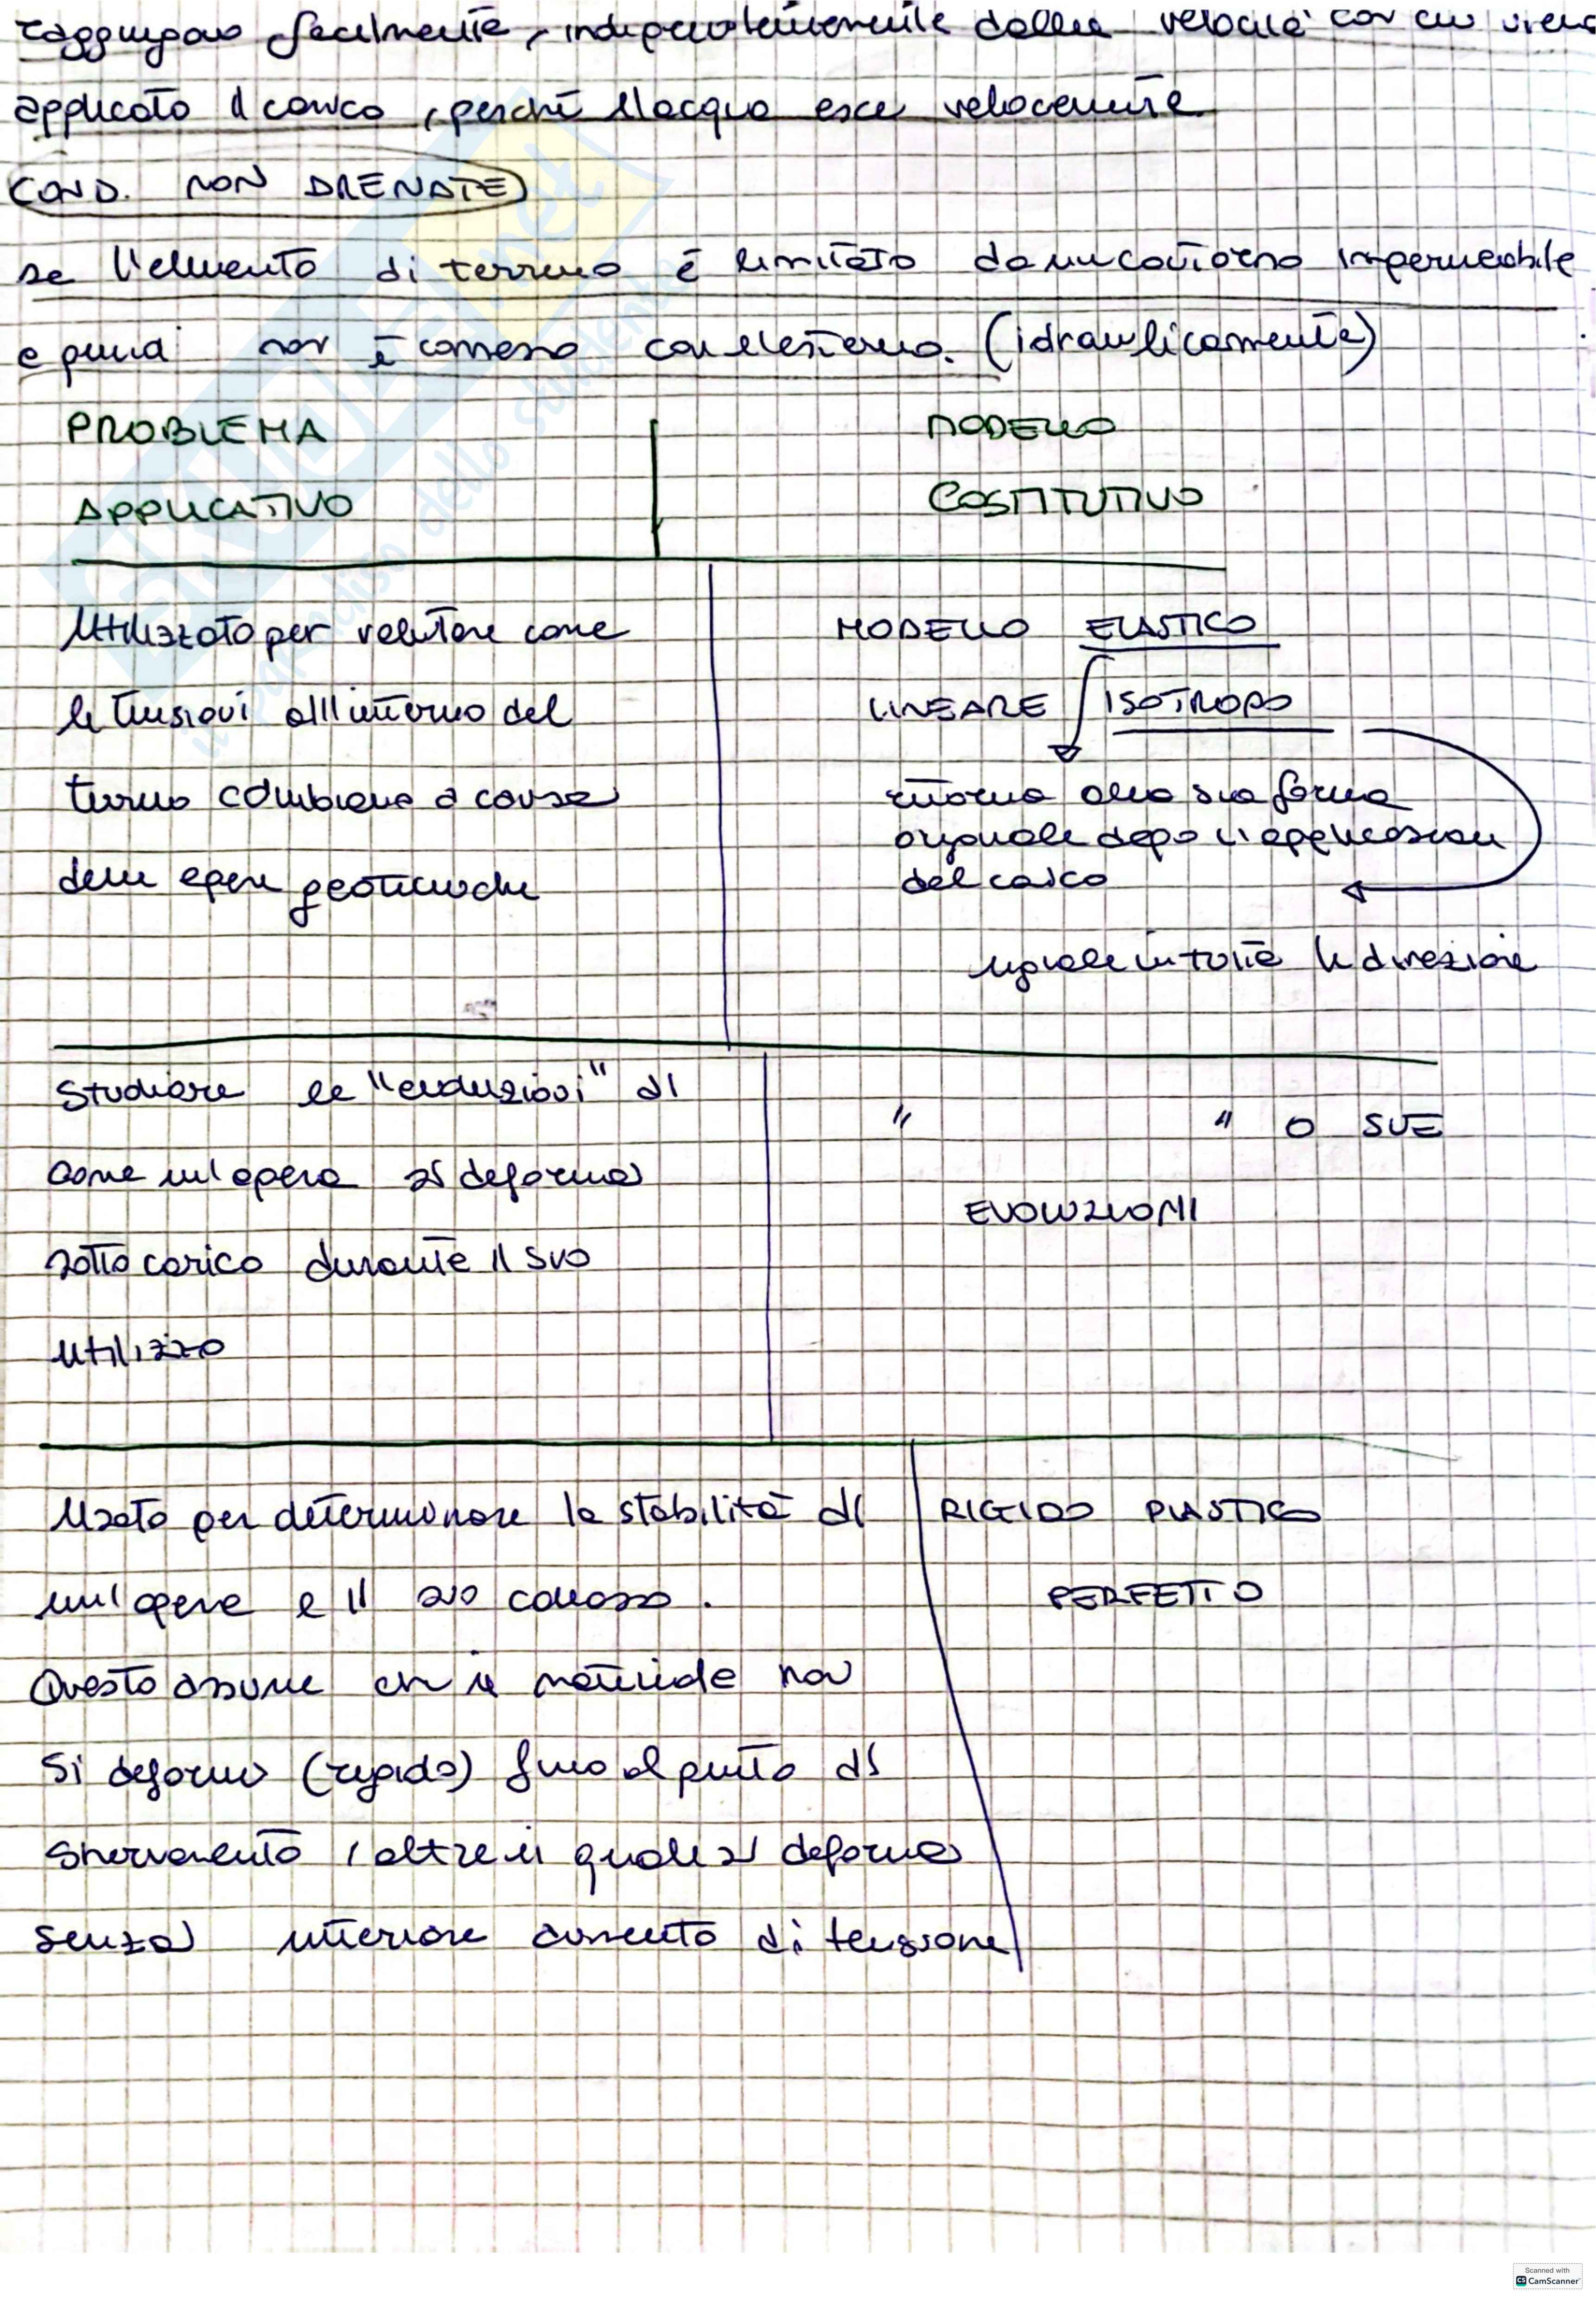 raggiungono facilmente, indipendentemente dalla velocità con cui viene
applicato il carico, perché l'acqua esce velocemente
COND. NON DRENATE
se l'elemento di terreno è limitato da un contorno impermeabile
e quindi non è connesso con l'esterno. (idraulicamente)
PROBLEMA
APPLICATIVO
MODELLO
COSTITUTIVO
Utilizzato per valutare come
le tensioni all'interno del
terreno cambiano a causa
delle opere geotecniche
MODELLO ELASTICO
LINEARE ISOTROPO
ritorna alla sua forma
originale dopo l'applicazione
del carico
uguale in tutte le direzione
Studiare le "evoluzioni" di
come un'opera si deforma
sotto carico durante il suo
utilizzo
" " O SUE
EVOLUZIONI
Usato per determinare la stabilità di
un'opera e il suo collasso.
Questo assume che il materiale non
si deforma (rigido) fino al punto di
snervamento, oltre il quale si deforma
senza ulteriore aumento di tensione
RIGIDO PLASTICO
PERFETTO
SKUOLA.net
il paradiso dello studente
Scanned with
CS CamScanner